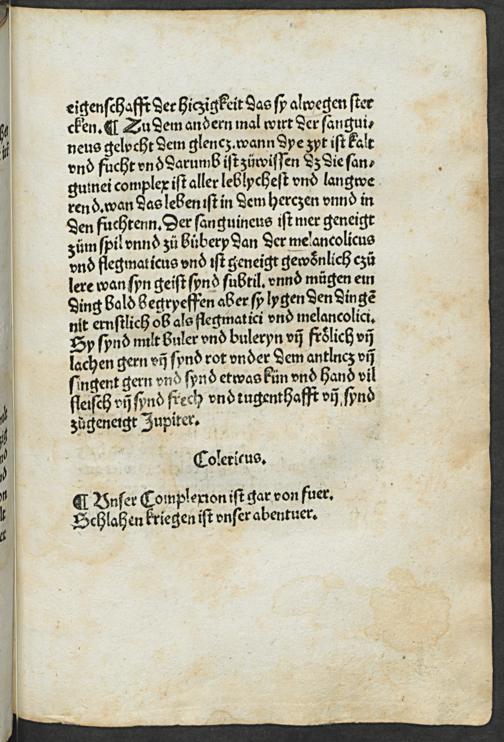 eigenschafft der hiczigkeit das sy alwegen ster
cken. ¶ Zu dem andern mal wirt der sangui⸗
neus gelycht dem glencz. wann dye zyt ist kalt
vnd fucht vnd darumb ist zůwissen dz die san⸗
guinei complex ist aller leblychest vnd langwe
rend. wan das leben ist in dem herczen vnnd in
den fuchtenn. Der sanguineus ist mer geneigt
zům spil vnnd zů bůbery dan der melancolicus
vnd flegmaticus vnd ist geneigt gewőnlich czů
lere wan syn geist synd subtil. vnnd mügen ein
ding bald begryeffen aber sy lygen den dingē
nit ernstlich ob als flegmatici vnd melancolici.
Sy synd milt buler vnd buleryn vn̄ frőlich vn̄
lachen gern vn̄ synd rot vnder dem antlucz vn̄
singent gern vnd synd etwas kün vnd hand vil
fleisch vn̄ synd frech vnd tugenthafft vn̄ synd
zůgeneigt Jupiter.
Colericus.
¶ Vnser Complexion ist gar von fuer.
Schlahen kriegen ist vnser abentuer.